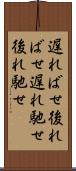 遅ればせ後れ
ばせ遅れ馳せ
後れ馳せ